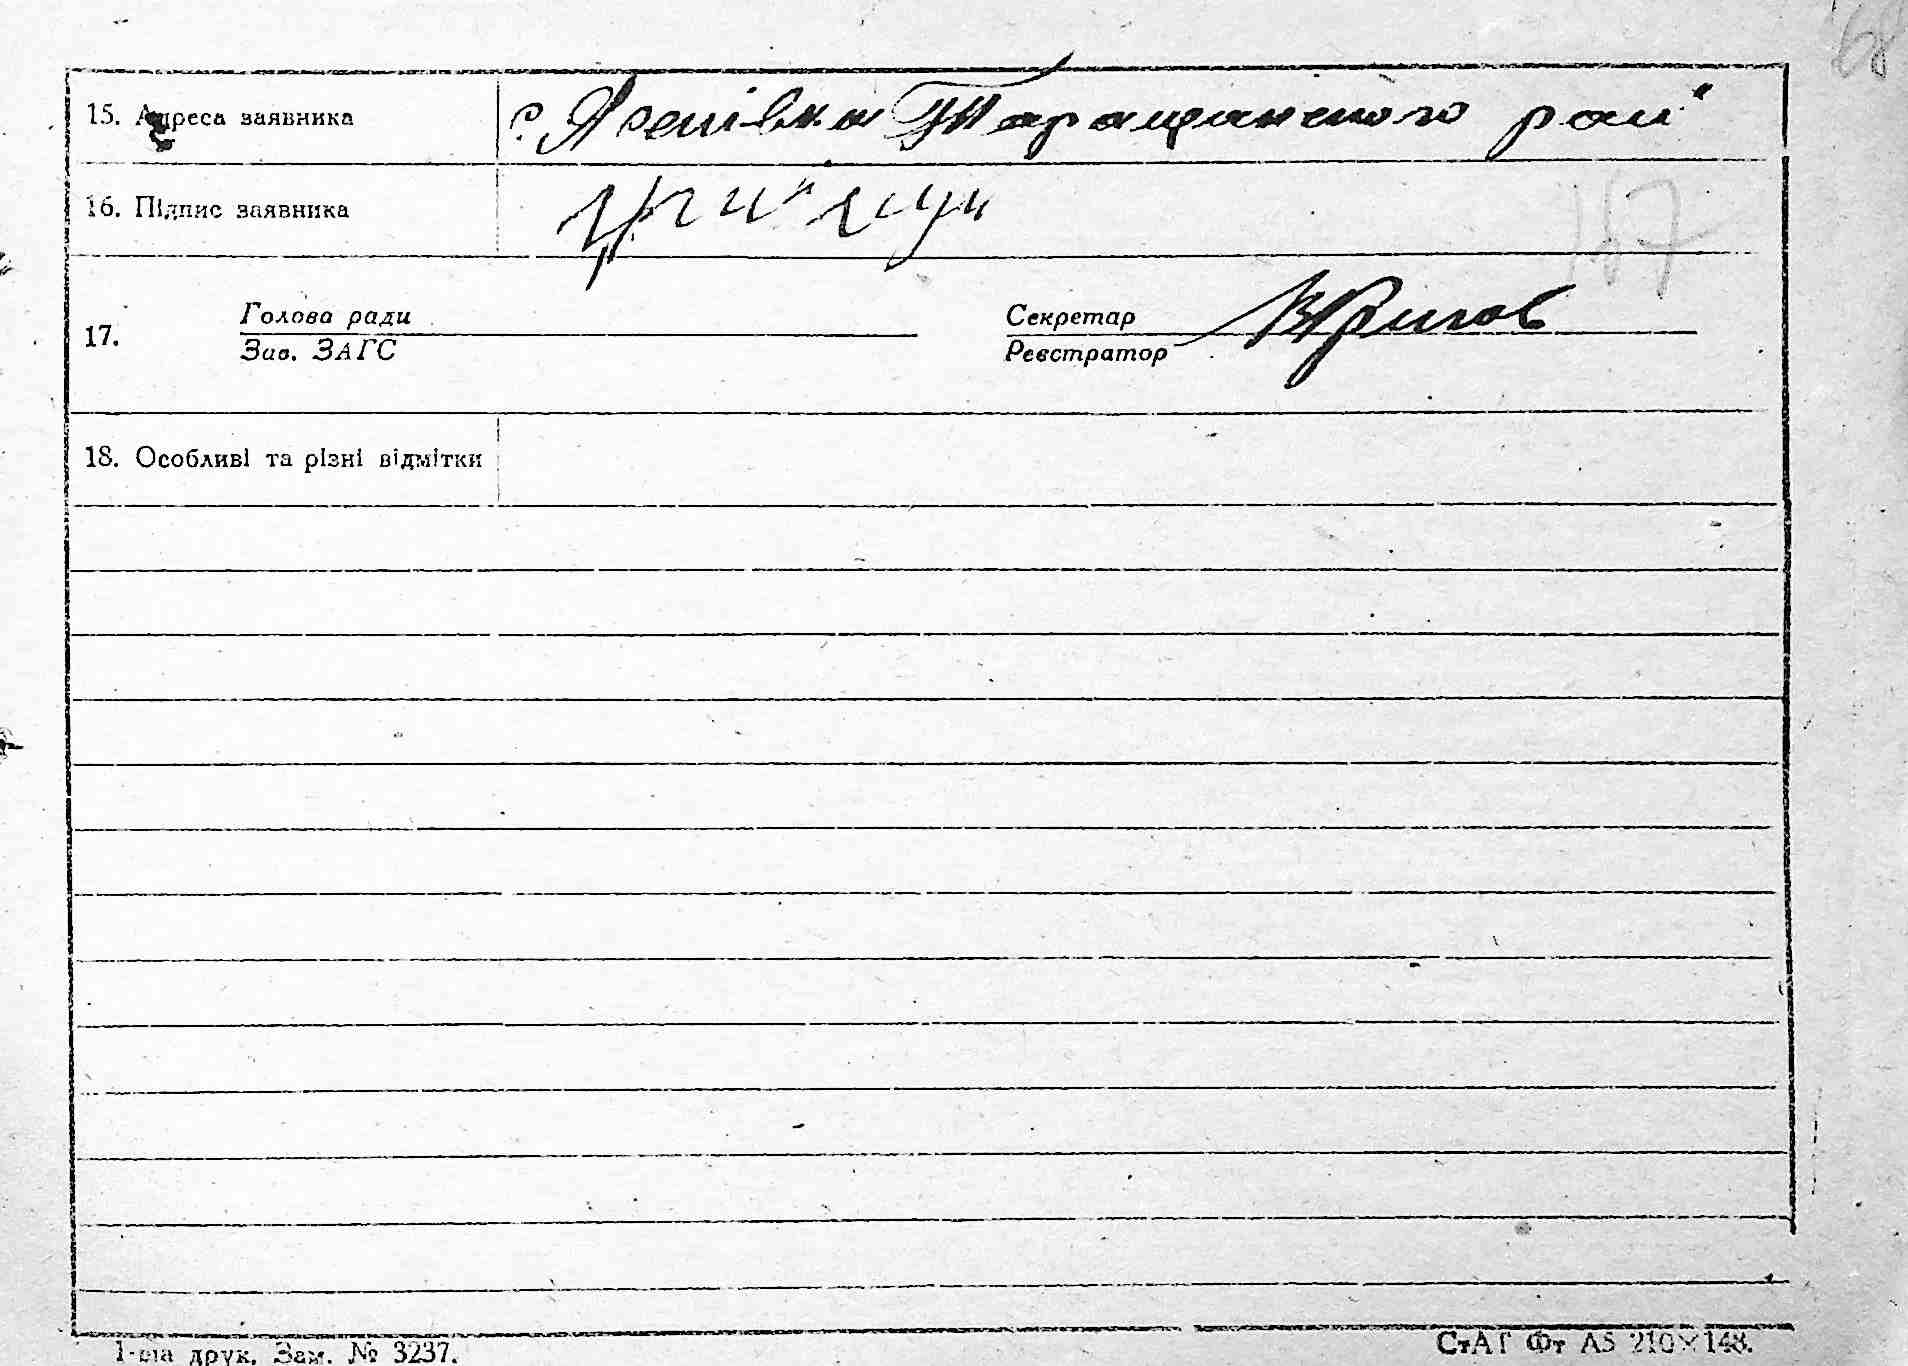 15. Адреса заявника с. Ясенівка Таращанського рай
16. Підпис заявника
187
17. Голова ради Секретар
Зав. ЗАГС Реєстратор
18. Особливі та різні відмітки
1-ша друк. Зам. № 3237. СтАТ Фт А5 210×148.